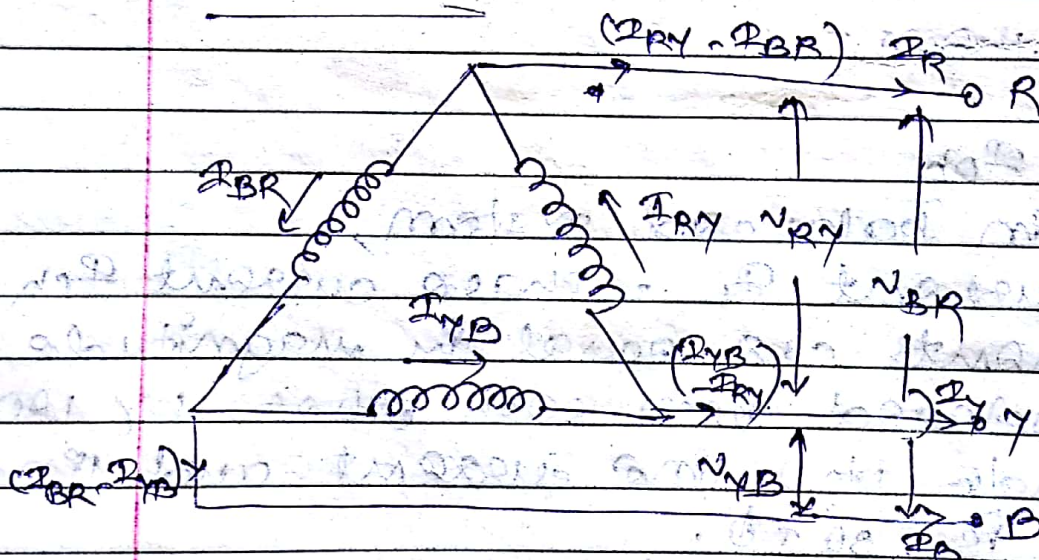 (I_RY - I_BR) I_R R
I_BR I_RY V_RY V_BR
I_YB
(I_YB - I_RY) I_Y Y
(I_BR - I_YB) V_YB
I_B B